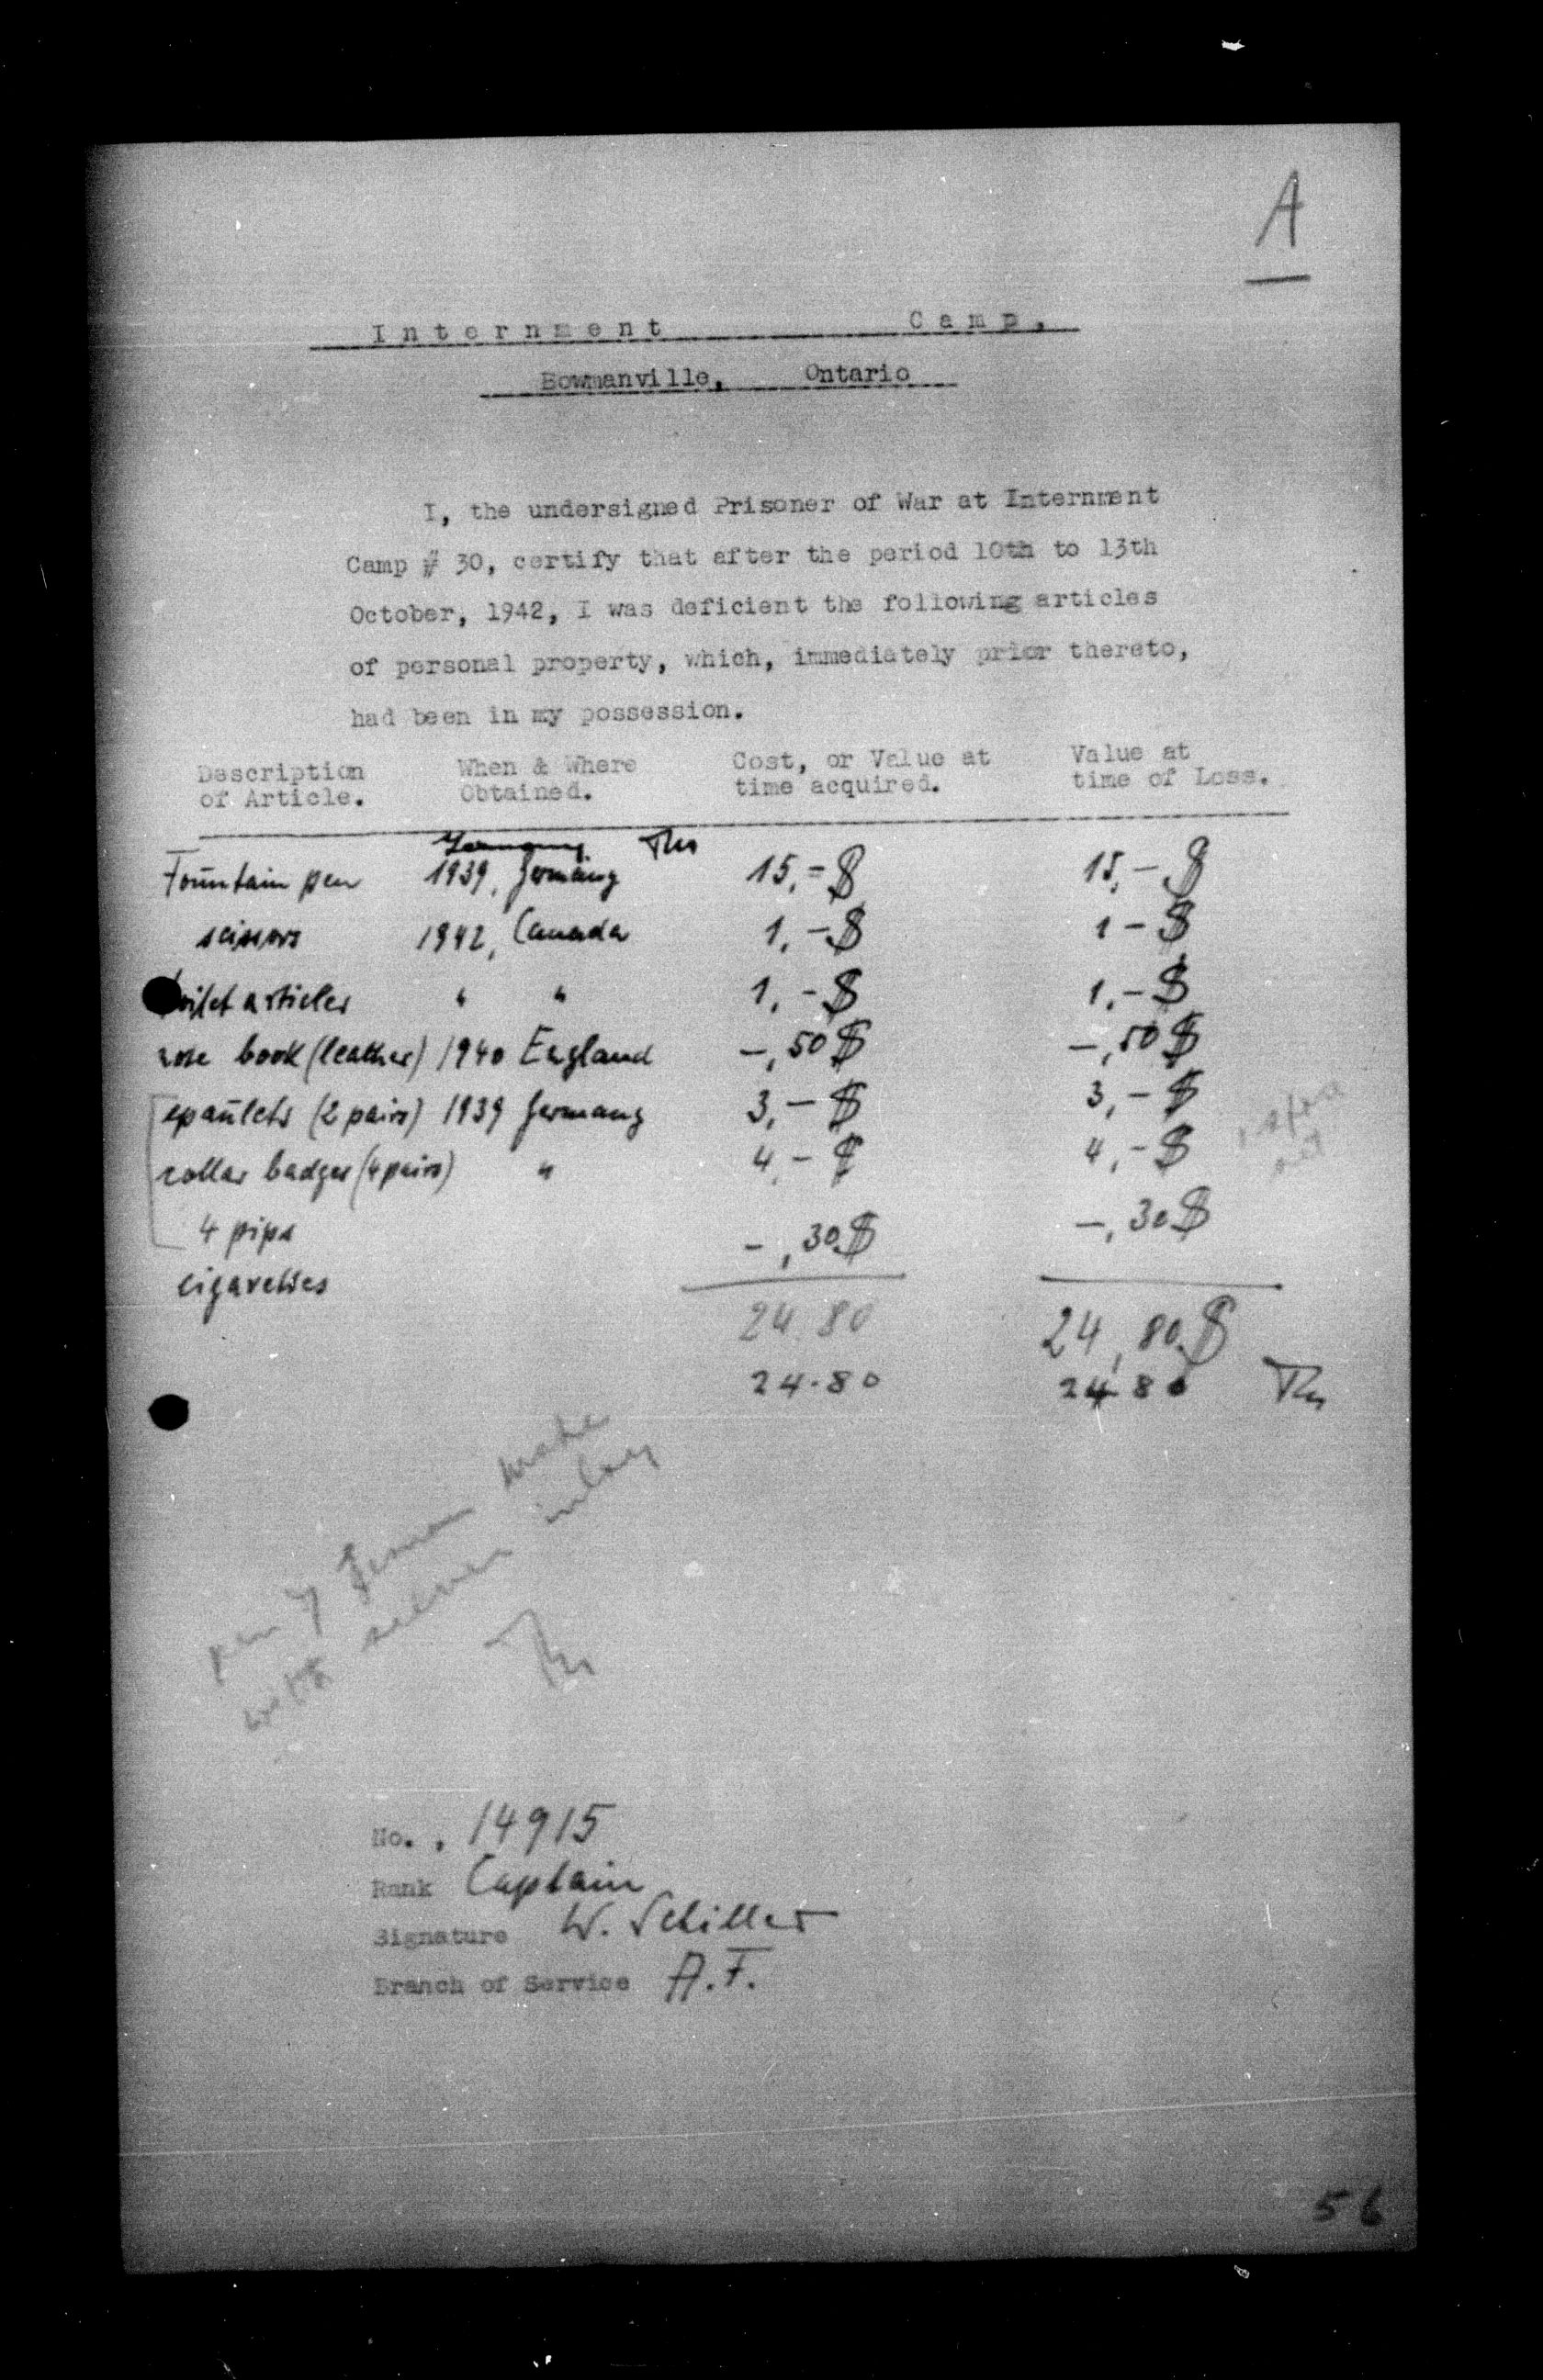 A
Internment Camp.
Bowmanville, Ontario
I, the undersigned Prisoner of War at Internment
Camp # 30, certify that after the period 10th to 13th
October, 1942, I was deficient the following articles
of personal property, which, immediately prior thereto,
had been in my possession.
Description of Article. When & Where Obtained. Cost, or Value at time acquired. Value at time of Loss.
Germany
Fountain pen 1939, Germany 15,-$ 15,-$
scissors 1942, Canada 1,-$ 1-$
toilet articles " " 1,-$ 1,-$
book (leather) 1940 England -,50$ -,50$
epaulets (2 pairs) 1939 Germany 3,-$ 3,-$
collar badges (4 pairs) " 4,-$ 4,-$
4 pips -,30$ -,30$
cigarettes
24.80 24,80$
24.80 24.80
pen of German make
with silver inlay
No. , 14915
Rank Captain
Signature W. Schiller
Branch of Service A.F.
56